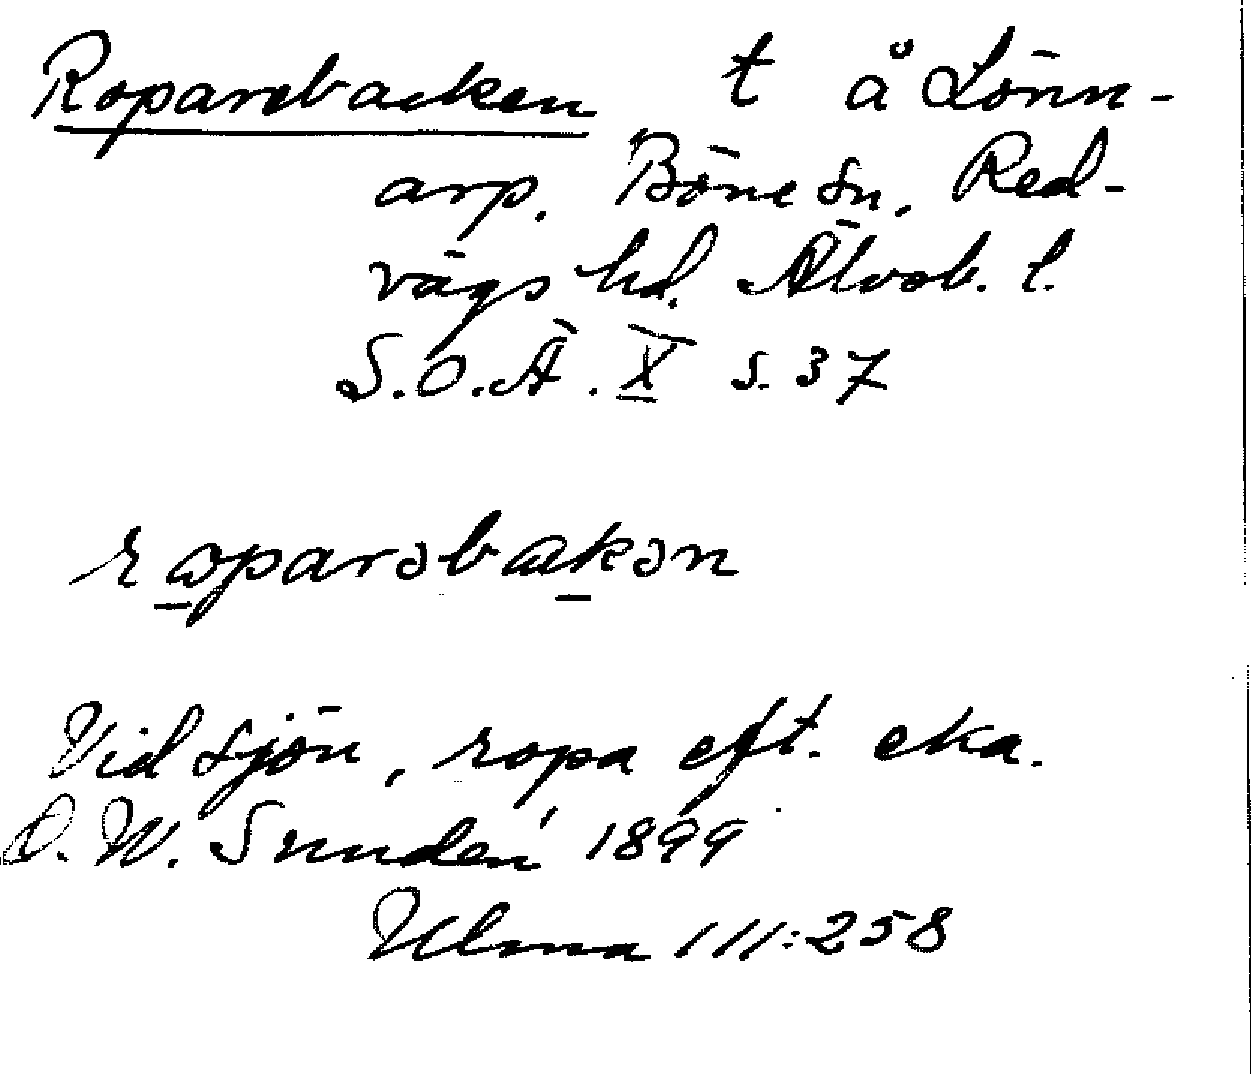 Roparebacken t å Lönn-
arp. Böne sn. Red-
vägs hd. Älvsb. l.
S.O.Ä. X s. 37
rɷparəbakən
Vid sjön, ropa eft. eka.
D. W. Sundén 1899
Ulma 111:258